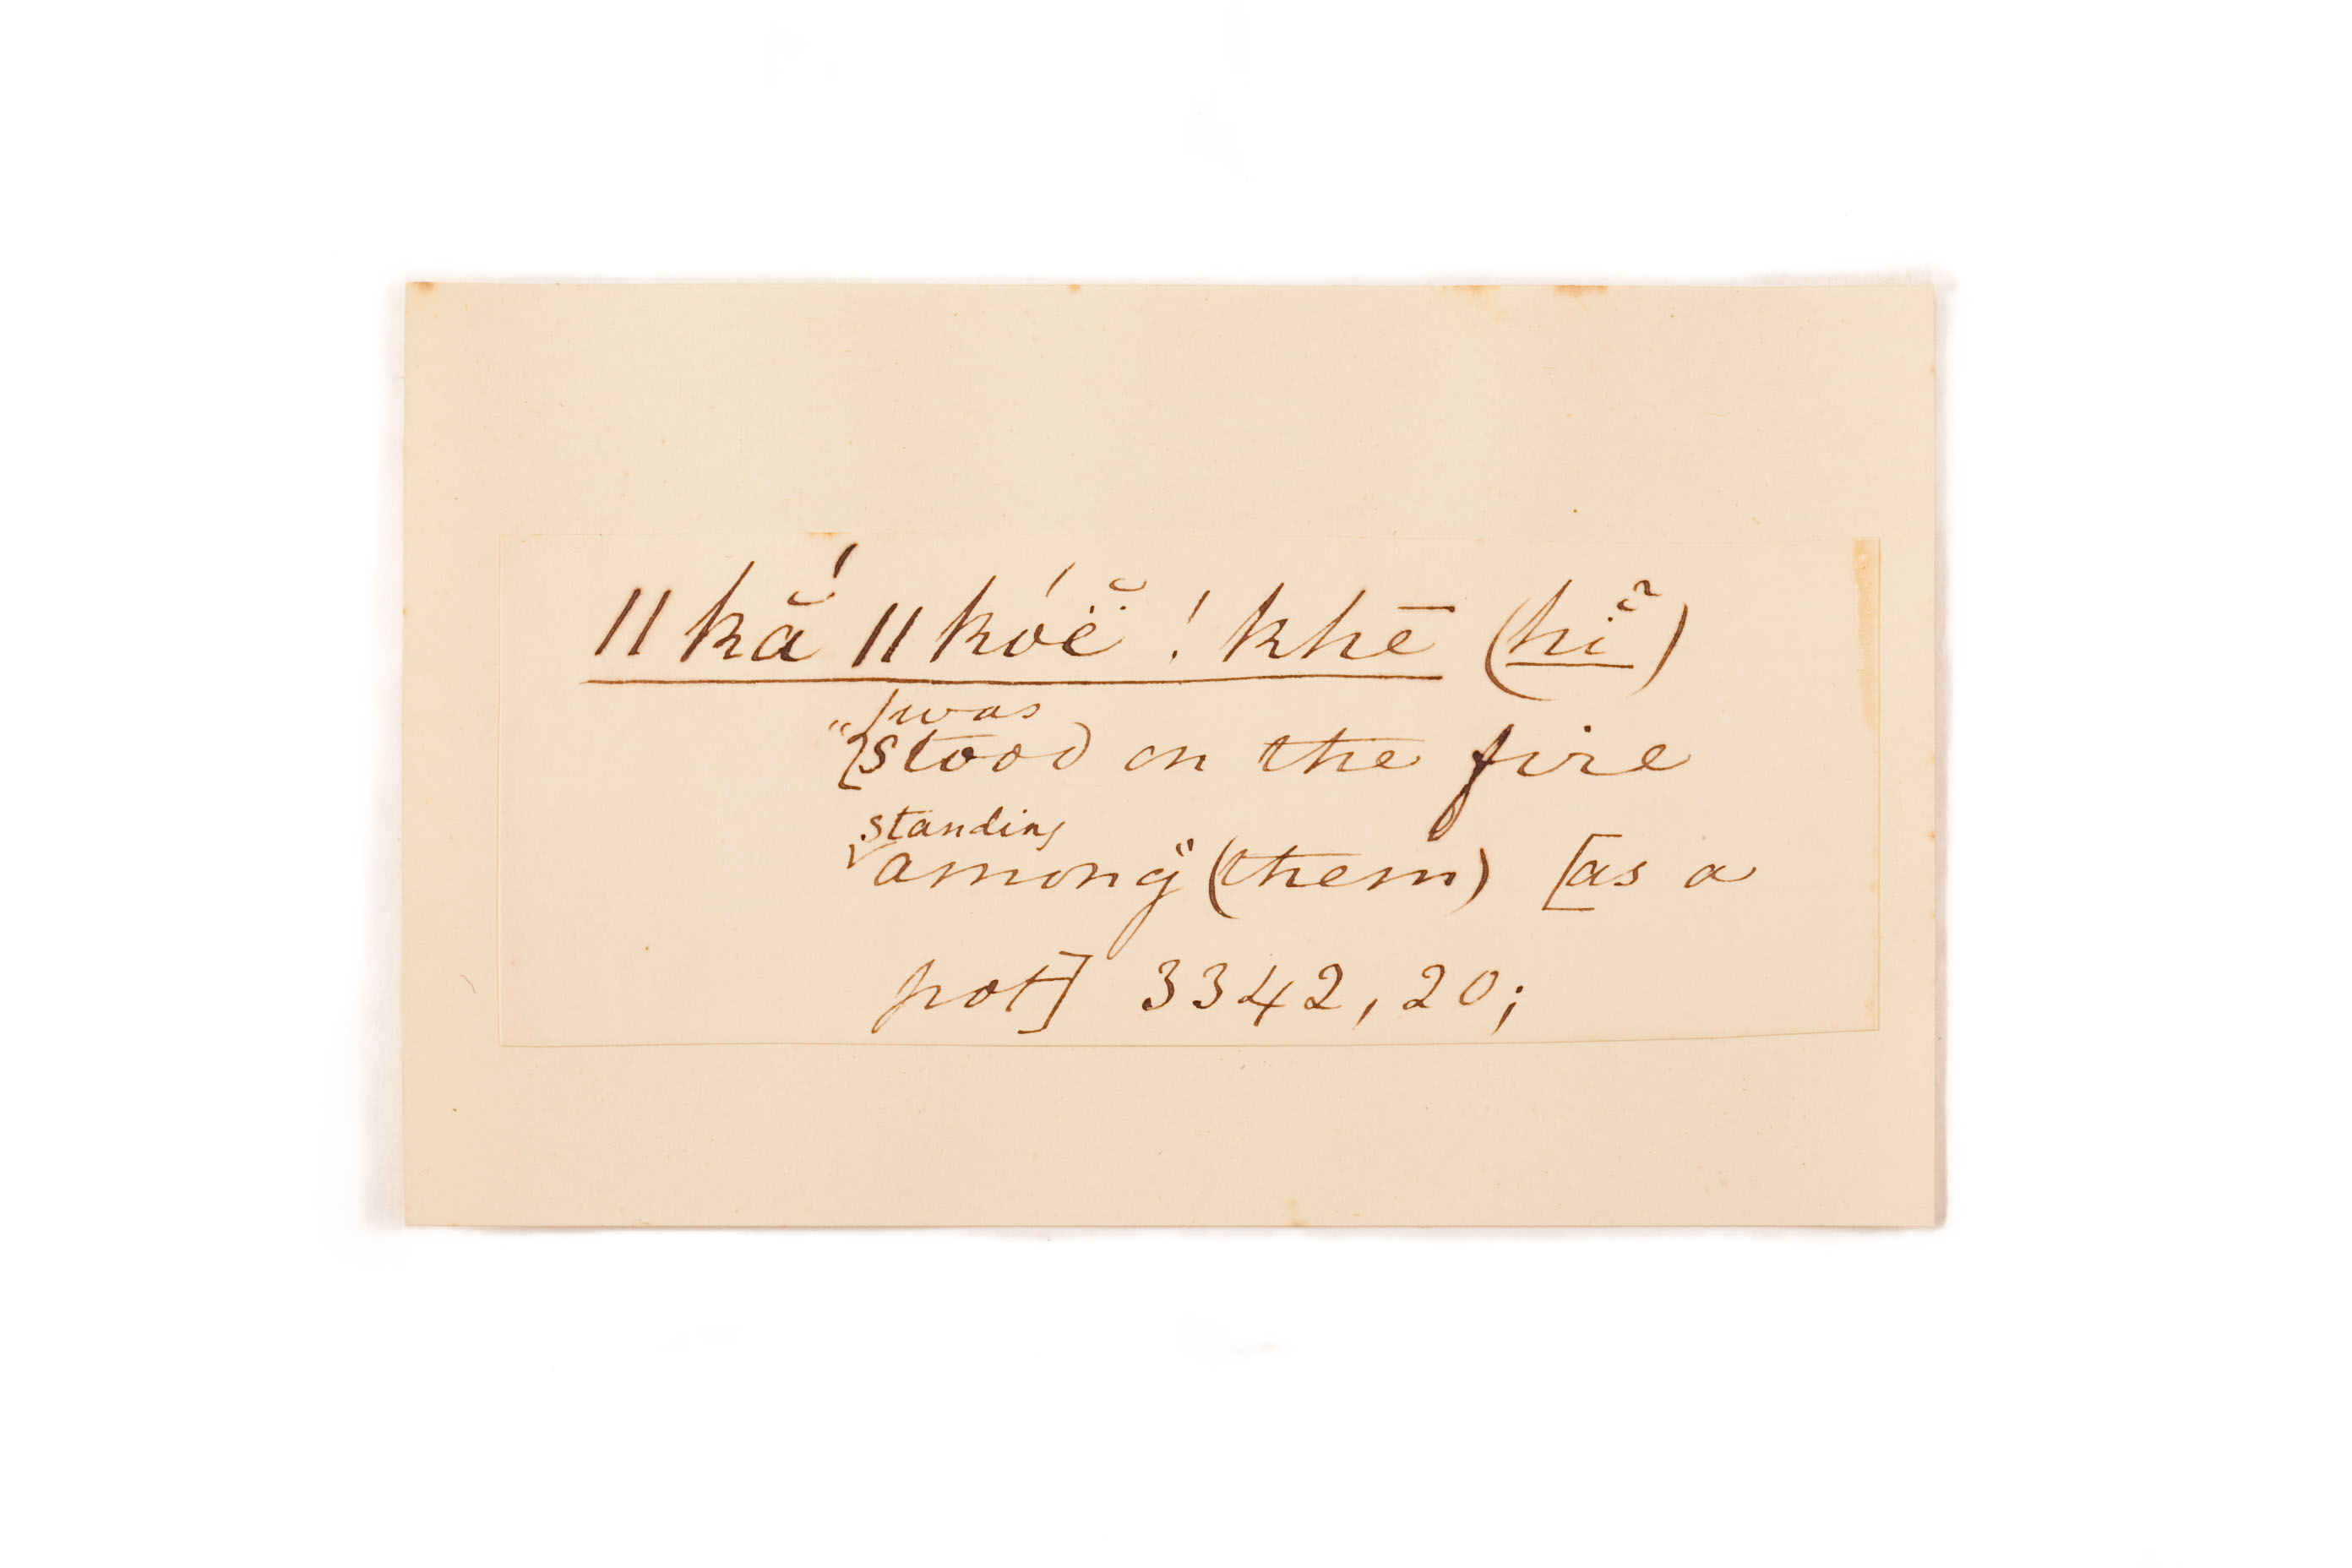 ǁkắ ǁkóë̆ !khē (hĭ̃)
was
"{stood on the fire
standing
among" (them) [as a
pot] 3342, 20;